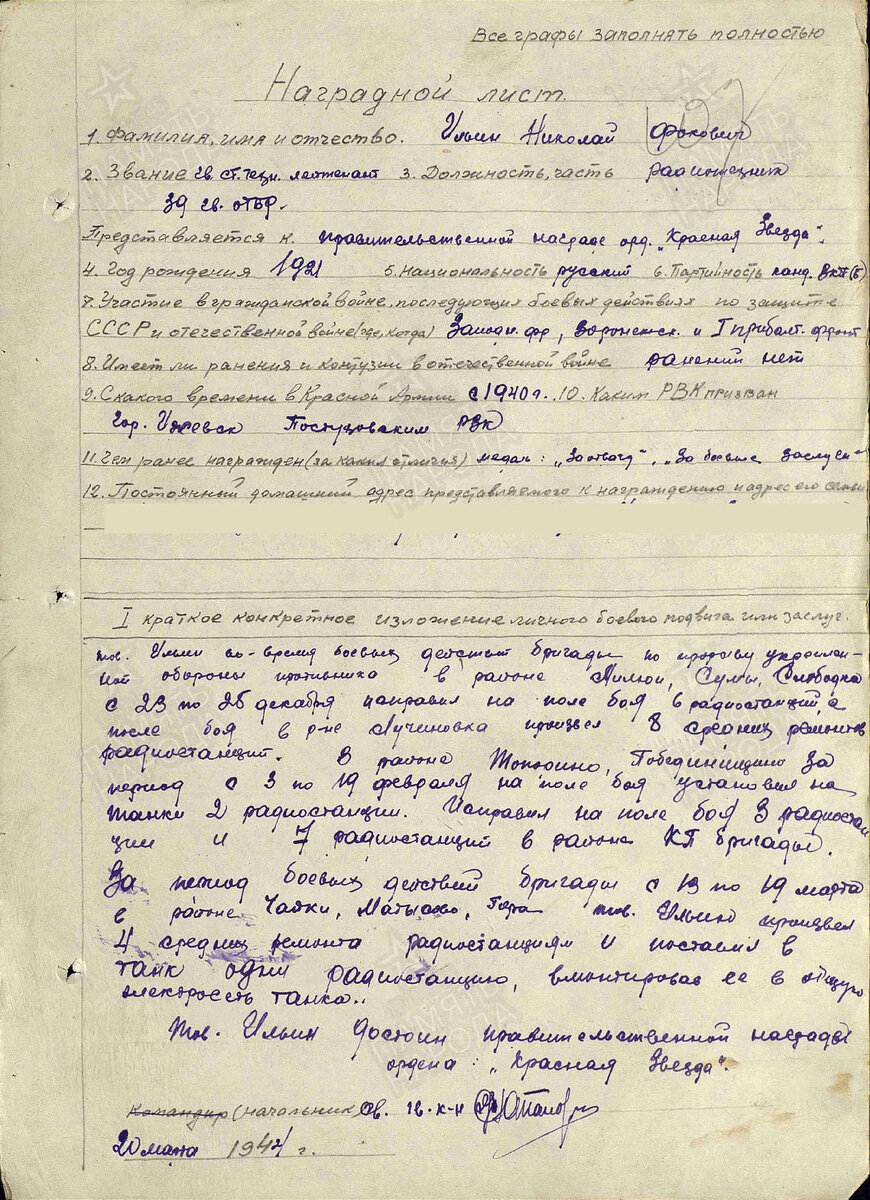 Все графы заполнять полностью
Наградной лист.
1. Фамилия, имя и отчество. Ильин Николай Фокович
2. Звание гв. ст. техн. лейтенант 3. Должность, часть радиотехник
39 гв. отбр.
Представляется к. правительственной награде орд. „Красная Звезда".
4. Год рождения 1921 5. Национальность русский 6. Партийность канд. ВКП(б)
7. Участие в гражданской войне, последующих боевых действиях по защите
СССР и отечественной войне (где, когда) Западн. фр, Воронежск. и I прибалт. фронт
8. Имеет ли ранения и контузии в отечественной войне ранений нет
9. С какого времени в Красной Армии с 1940 г. 10. Каким РВК призван
Гор. Ижевск Пастуховским РВК
11. Чем ранее награжден (за какие отличия) медал: „За отвагу", „За боевые заслуги"
12. Постоянный домашний адрес представляемого к награждению и адрес его семьи
I краткое конкретное изложение личного боевого подвига или заслуг.
тов. Ильин во-время боевых действий бригады по прорыву укреплен-
ной обороны противника в районе Сумы, Слободка
с 23 по 25 декабря исправил на поле боя 6 радиостанций, а
после боя в р-не Лучиновка произвел 8 средних ремонтов
радиостанций. В районе за
период с 3 по 19 февраля на поле боя установил на
танки 2 радиостанции. Исправил на поле боя 3 радиостан
ции и 7 радиостанций в районе КП бригады.
За период боевых действий бригады с 13 по 19 марта
в районе Чайки, Гора тов. Ильин произвел
4 средних ремонта радиостанциям и поставил в
танк одну радиостанцию, вмонтировав ее в общую
электросеть танка..
Тов. Ильин достоин правительственной награды
ордена: „Красная Звезда".
Командир (начальник) св. гв. к-н
20 марта 1944 г.